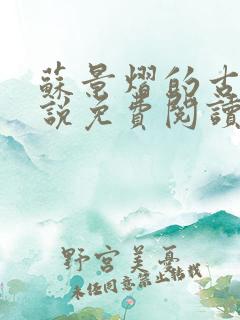 蘇景熠的古
說免費閱讀
野宮美憂
未经同意禁止转载